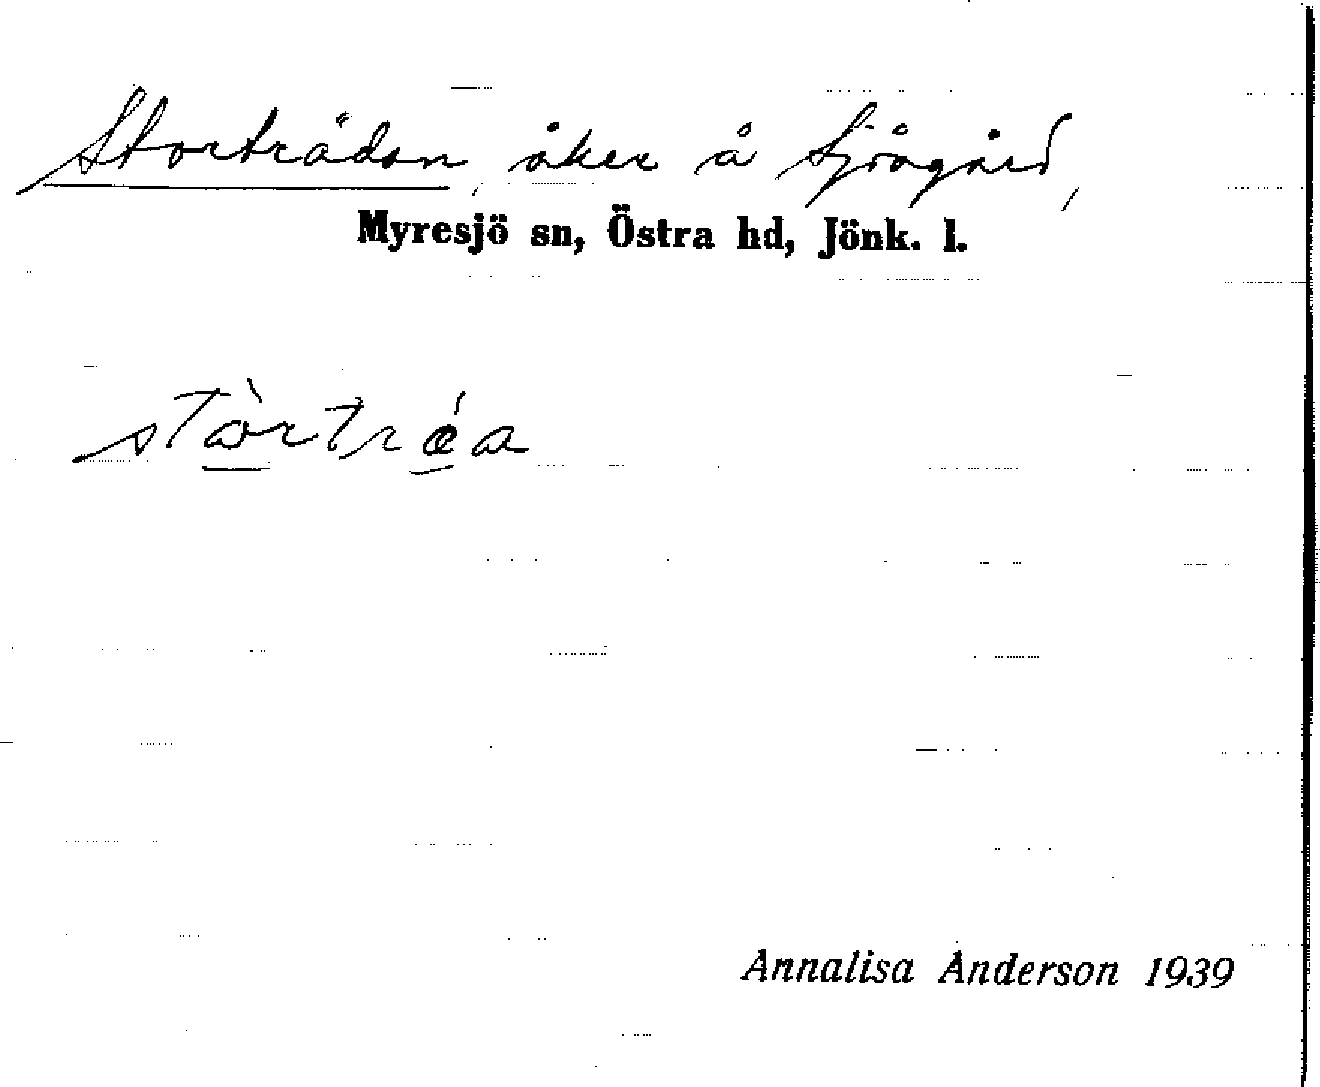 Storträdan, åker å
Myresjö sn, Östra hd, Jönk. l.
stòrtrǽa
Annalisa Anderson 1939